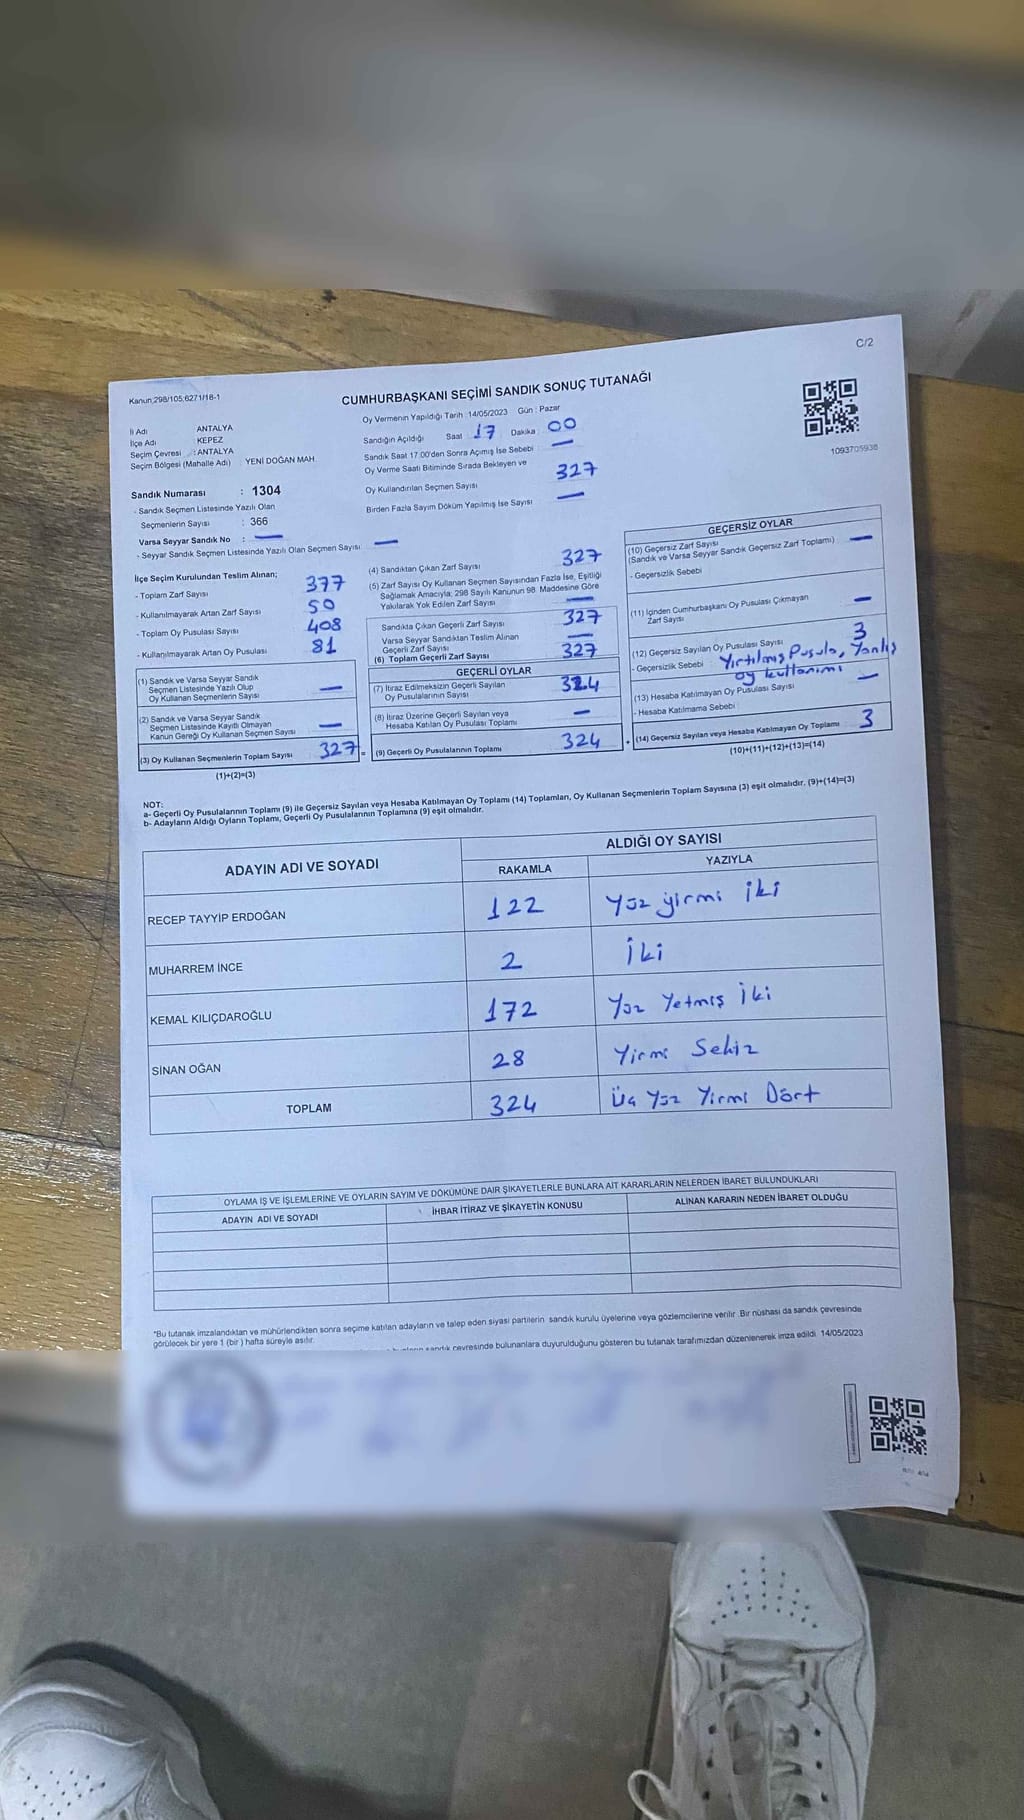 C/2
Kanun,298/105;6271/18-1
CUMHURBAŞKANI SEÇİMİ SANDIK SONUÇ TUTANAĞI
İl Adı ANTALYA
İlçe Adı KEPEZ
Seçim Çevresi : ANTALYA
Seçim Bölgesi (Mahalle Adı) : YENİ DOĞAN MAH.
Sandık Numarası : 1304
- Sandık Seçmen Listesinde Yazılı Olan
Seçmenlerin Sayısı : 366
Varsa Seyyar Sandık No : —
- Seyyar Sandık Seçmen Listesinde Yazılı Olan Seçmen Sayısı —
Oy Vermenin Yapıldığı Tarih :14/05/2023 Gün : Pazar
Sandığın Açıldığı Saat 17 Dakika : 00
Sandık Saat 17.00'den Sonra Açılmış İse Sebebi : —
Oy Verme Saati Bitiminde Sırada Bekleyen ve
Oy Kullandırılan Seçmen Sayısı 327
Birden Fazla Sayım Döküm Yapılmış İse Sayısı —
1093705938
İlçe Seçim Kurulundan Teslim Alınan;
- Toplam Zarf Sayısı 377
- Kullanılmayarak Artan Zarf Sayısı 50
- Toplam Oy Pusulası Sayısı 408
- Kullanılmayarak Artan Oy Pusulası 81
(1) Sandık ve Varsa Seyyar Sandık
Seçmen Listesinde Yazılı Olup
Oy Kullanan Seçmenlerin Sayısı —
(2) Sandık ve Varsa Seyyar Sandık
Seçmen Listesinde Kayıtlı Olmayan
Kanun Gereği Oy Kullanan Seçmen Sayısı —
(3) Oy Kullanan Seçmenlerin Toplam Sayısı 327 =
(1)+(2)=(3)
(4) Sandıktan Çıkan Zarf Sayısı 327
(5) Zarf Sayısı Oy Kullanan Seçmen Sayısından Fazla İse, Eşitliği
Sağlamak Amacıyla; 298 Sayılı Kanunun 98. Maddesine Göre
Yakılarak Yok Edilen Zarf Sayısı —
Sandıkta Çıkan Geçerli Zarf Sayısı 327
Varsa Seyyar Sandıktan Teslim Alınan
Geçerli Zarf Sayısı —
(6) Toplam Geçerli Zarf Sayısı 327
GEÇERLİ OYLAR
(7) İtiraz Edilmeksizin Geçerli Sayılan
Oy Pusulalarının Sayısı 324
(8) İtiraz Üzerine Geçerli Sayılan veya
Hesaba Katılan Oy Pusulası Toplamı —
(9) Geçerli Oy Pusulalarının Toplamı 324 +
GEÇERSİZ OYLAR
(10) Geçersiz Zarf Sayısı
(Sandık ve Varsa Seyyar Sandık Geçersiz Zarf Toplamı) —
- Geçersizlik Sebebi
(11) İçinden Cumhurbaşkanı Oy Pusulası Çıkmayan
Zarf Sayısı —
(12) Geçersiz Sayılan Oy Pusulası Sayısı 3
- Geçersizlik Sebebi Yırtılmış Pusula, Yanlış
oy kullanımı
(13) Hesaba Katılmayan Oy Pusulası Sayısı —
- Hesaba Katılmama Sebebi
(14) Geçersiz Sayılan veya Hesaba Katılmayan Oy Toplamı 3
(10)+(11)+(12)+(13)=(14)
NOT:
a- Geçerli Oy Pusulalarının Toplamı (9) ile Geçersiz Sayılan veya Hesaba Katılmayan Oy Toplamı (14) Toplamları, Oy Kullanan Seçmenlerin Toplam Sayısına (3) eşit olmalıdır. (9)+(14)=(3)
b- Adayların Aldığı Oyların Toplamı, Geçerli Oy Pusulalarının Toplamına (9) eşit olmalıdır.
ADAYIN ADI VE SOYADI ALDIĞI OY SAYISI
RAKAMLA YAZIYLA
RECEP TAYYİP ERDOĞAN 122 Yüz yirmi iki
MUHARREM İNCE 2 İki
KEMAL KILIÇDAROĞLU 172 Yüz Yetmiş İki
SİNAN OĞAN 28 Yirmi Sekiz
TOPLAM 324 Üç Yüz Yirmi Dört
OYLAMA İŞ VE İŞLEMLERİNE VE OYLARIN SAYIM VE DÖKÜMÜNE DAİR ŞİKAYETLERLE BUNLARA AİT KARARLARIN NELERDEN İBARET BULUNDUKLARI
ADAYIN ADI VE SOYADI İHBAR İTİRAZ VE ŞİKAYETİN KONUSU ALINAN KARARIN NEDEN İBARET OLDUĞU
*Bu tutanak imzalandıktan ve mühürlendikten sonra seçime katılan adayların ve talep eden siyasi partilerin sandık kurulu üyelerine veya gözlemcilerine verilir .Bir nüshası da sandık çevresinde
görülecek bir yere 1 (bir ) hafta süreyle asılır.
sandık çevresinde bulunanlara duyurulduğunu gösteren bu tutanak tarafımızdan düzenlenerek imza edildi. 14/05/2023